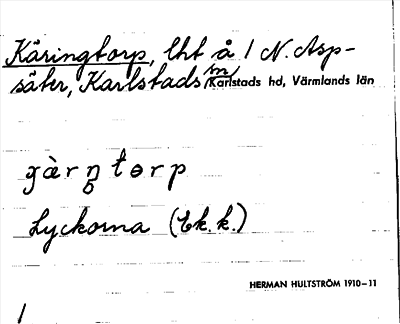 Käringtorp, lht å 1 N. Asp-
säter, Karlstads sn, Karlstads hd, Värmlands län
Lyckorna (Ek. k.)
HERMAN HULTSTRÖM 1910–11